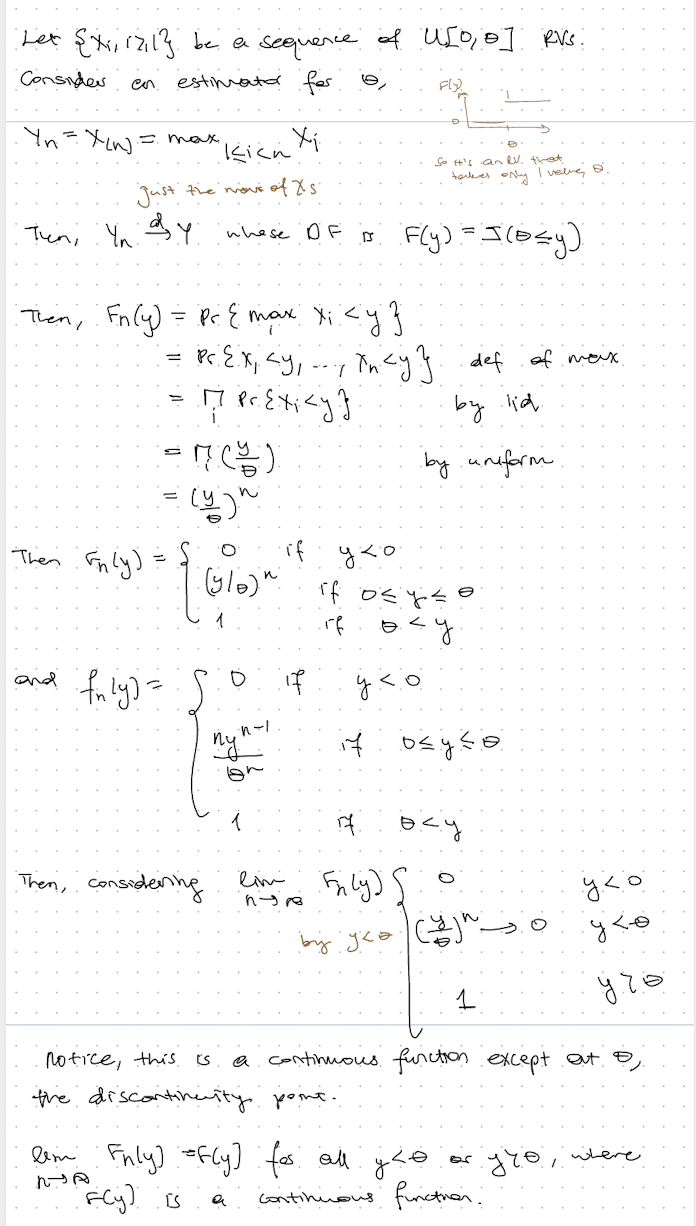 Let {Xi, i≥1} be a sequence of U[0,θ] RVs.
Consider an estimator for θ,
F(y)
1
0
θ
So it's an RV that
takes only 1 value, θ.
Yn = X(n) = max 1≤i≤n Xi
just the max of Xs
Then, Yn →d Y whose DF is F(y) = I(θ≤y)
Then, Fn(y) = Pr{ max i Xi < y }
= Pr{ X1<y, ..., Xn<y } def of max
= Π i Pr{Xi<y} by iid
= Π i (y/θ) by uniform
= (y/θ)^n
Then Fn(y) = { 0 if y<0
(y/θ)^n if 0≤y≤θ
1 if θ<y
and fn(y) = { 0 if y<0
ny^(n-1)/θ^n if 0≤y≤θ
1 if θ<y
Then, considering lim n→∞ Fn(y) { 0 y<0
by y<θ (y/θ)^n → 0 y<θ
1 y>θ
Notice, this is a continuous function except at θ,
the discontinuity point.
lim n→∞ Fn(y) = F(y) for all y<θ or y>θ, where
F(y) is a continuous function.